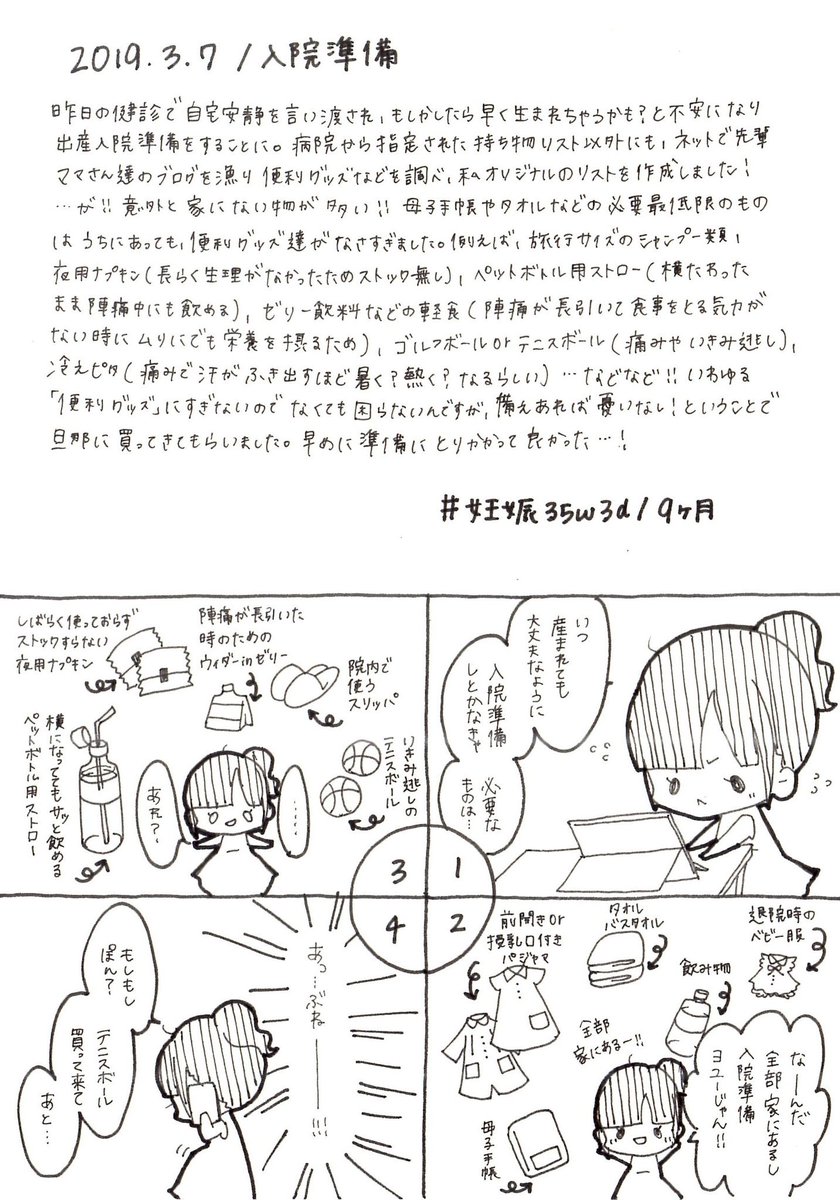 2019.3.7 / 入院準備
昨日の健診で自宅安静を言い渡され、もしかしたら早く生まれちゃうかも?と不安になり
出産入院準備をすることに。病院から指定された持ち物リスト以外にも、ネットで先輩
ママさん達のブログを漁り便利グッズなどを調べ、私オリジナルのリストを作成しました!
…が!!意外と家にない物が多い!!母子手帳やタオルなどの必要最低限のもの
はうちにあっても、便利グッズ達がなさすぎました。例えば、旅行サイズのシャンプー類、
夜用ナプキン(長らく生理がなかったためストック無し)、ペットボトル用ストロー(横たわった
まま陣痛中にも飲める)、ゼリー飲料などの軽食(陣痛が長引いて食事をとる気力が
ない時にムリにでも栄養を摂るため)、ゴルフボールorテニスボール(痛みやいきみ逃し)、
冷えピタ(痛みで汗がふき出すほど暑く?熱く?なるらしい)…などなど!!いわゆる
「便利グッズ」にすぎないのでなくても困らないんですが、備えあれば憂いなし!ということで
旦那に買ってきてもらいました。早めに準備にとりかかって良かった…!
#妊娠35w3d/9ヶ月
1
いつ
産まれても
大丈夫なように
入院準備
しとかなきゃ
必要な
ものは…
2
前開きor
授乳口付き
パジャマ
タオル
バスタオル
退院時の
ベビー服
飲み物
全部
家にあるー!!
母子手帳
なーんだ
全部家にあるし
入院準備
ヨユーじゃん!!
3
しばらく使っておらず
ストックすらない
夜用ナプキン
陣痛が長引いた
時のための
ウィダーinゼリー
院内で
使う
スリッパ
いきみ逃しの
テニスボール
横になっててもサッと飲める
ペットボトル用ストロー
……
あれ?〜
4
あっ…ぶねーーー!!!
もしもし
ぽん?〜
テニスボール
買って来て
あと…